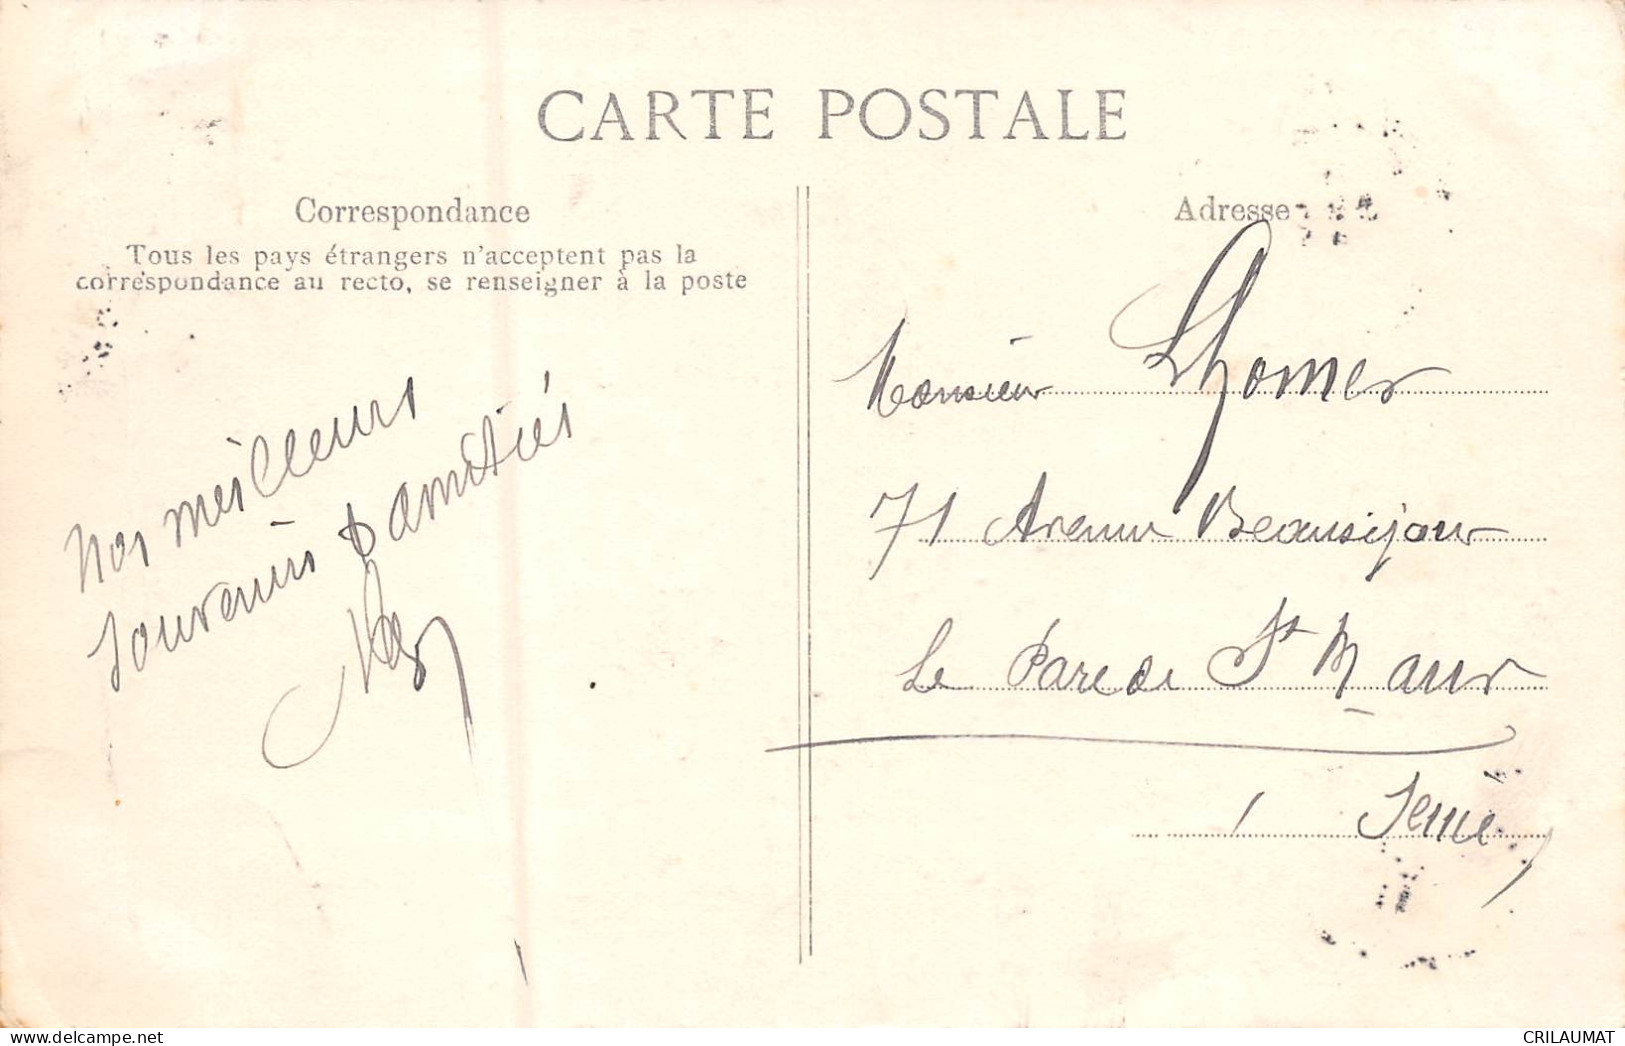 CARTE POSTALE
Correspondance
Tous les pays étrangers n'acceptent pas la
correspondance au recto, se renseigner à la poste
Nos meilleurs
souvenirs & amitiés
Adresse
Monsieur Lhomer
71 Avenue Beauséjour
Le Parc de St Maur
Seine
CRILAUMAT